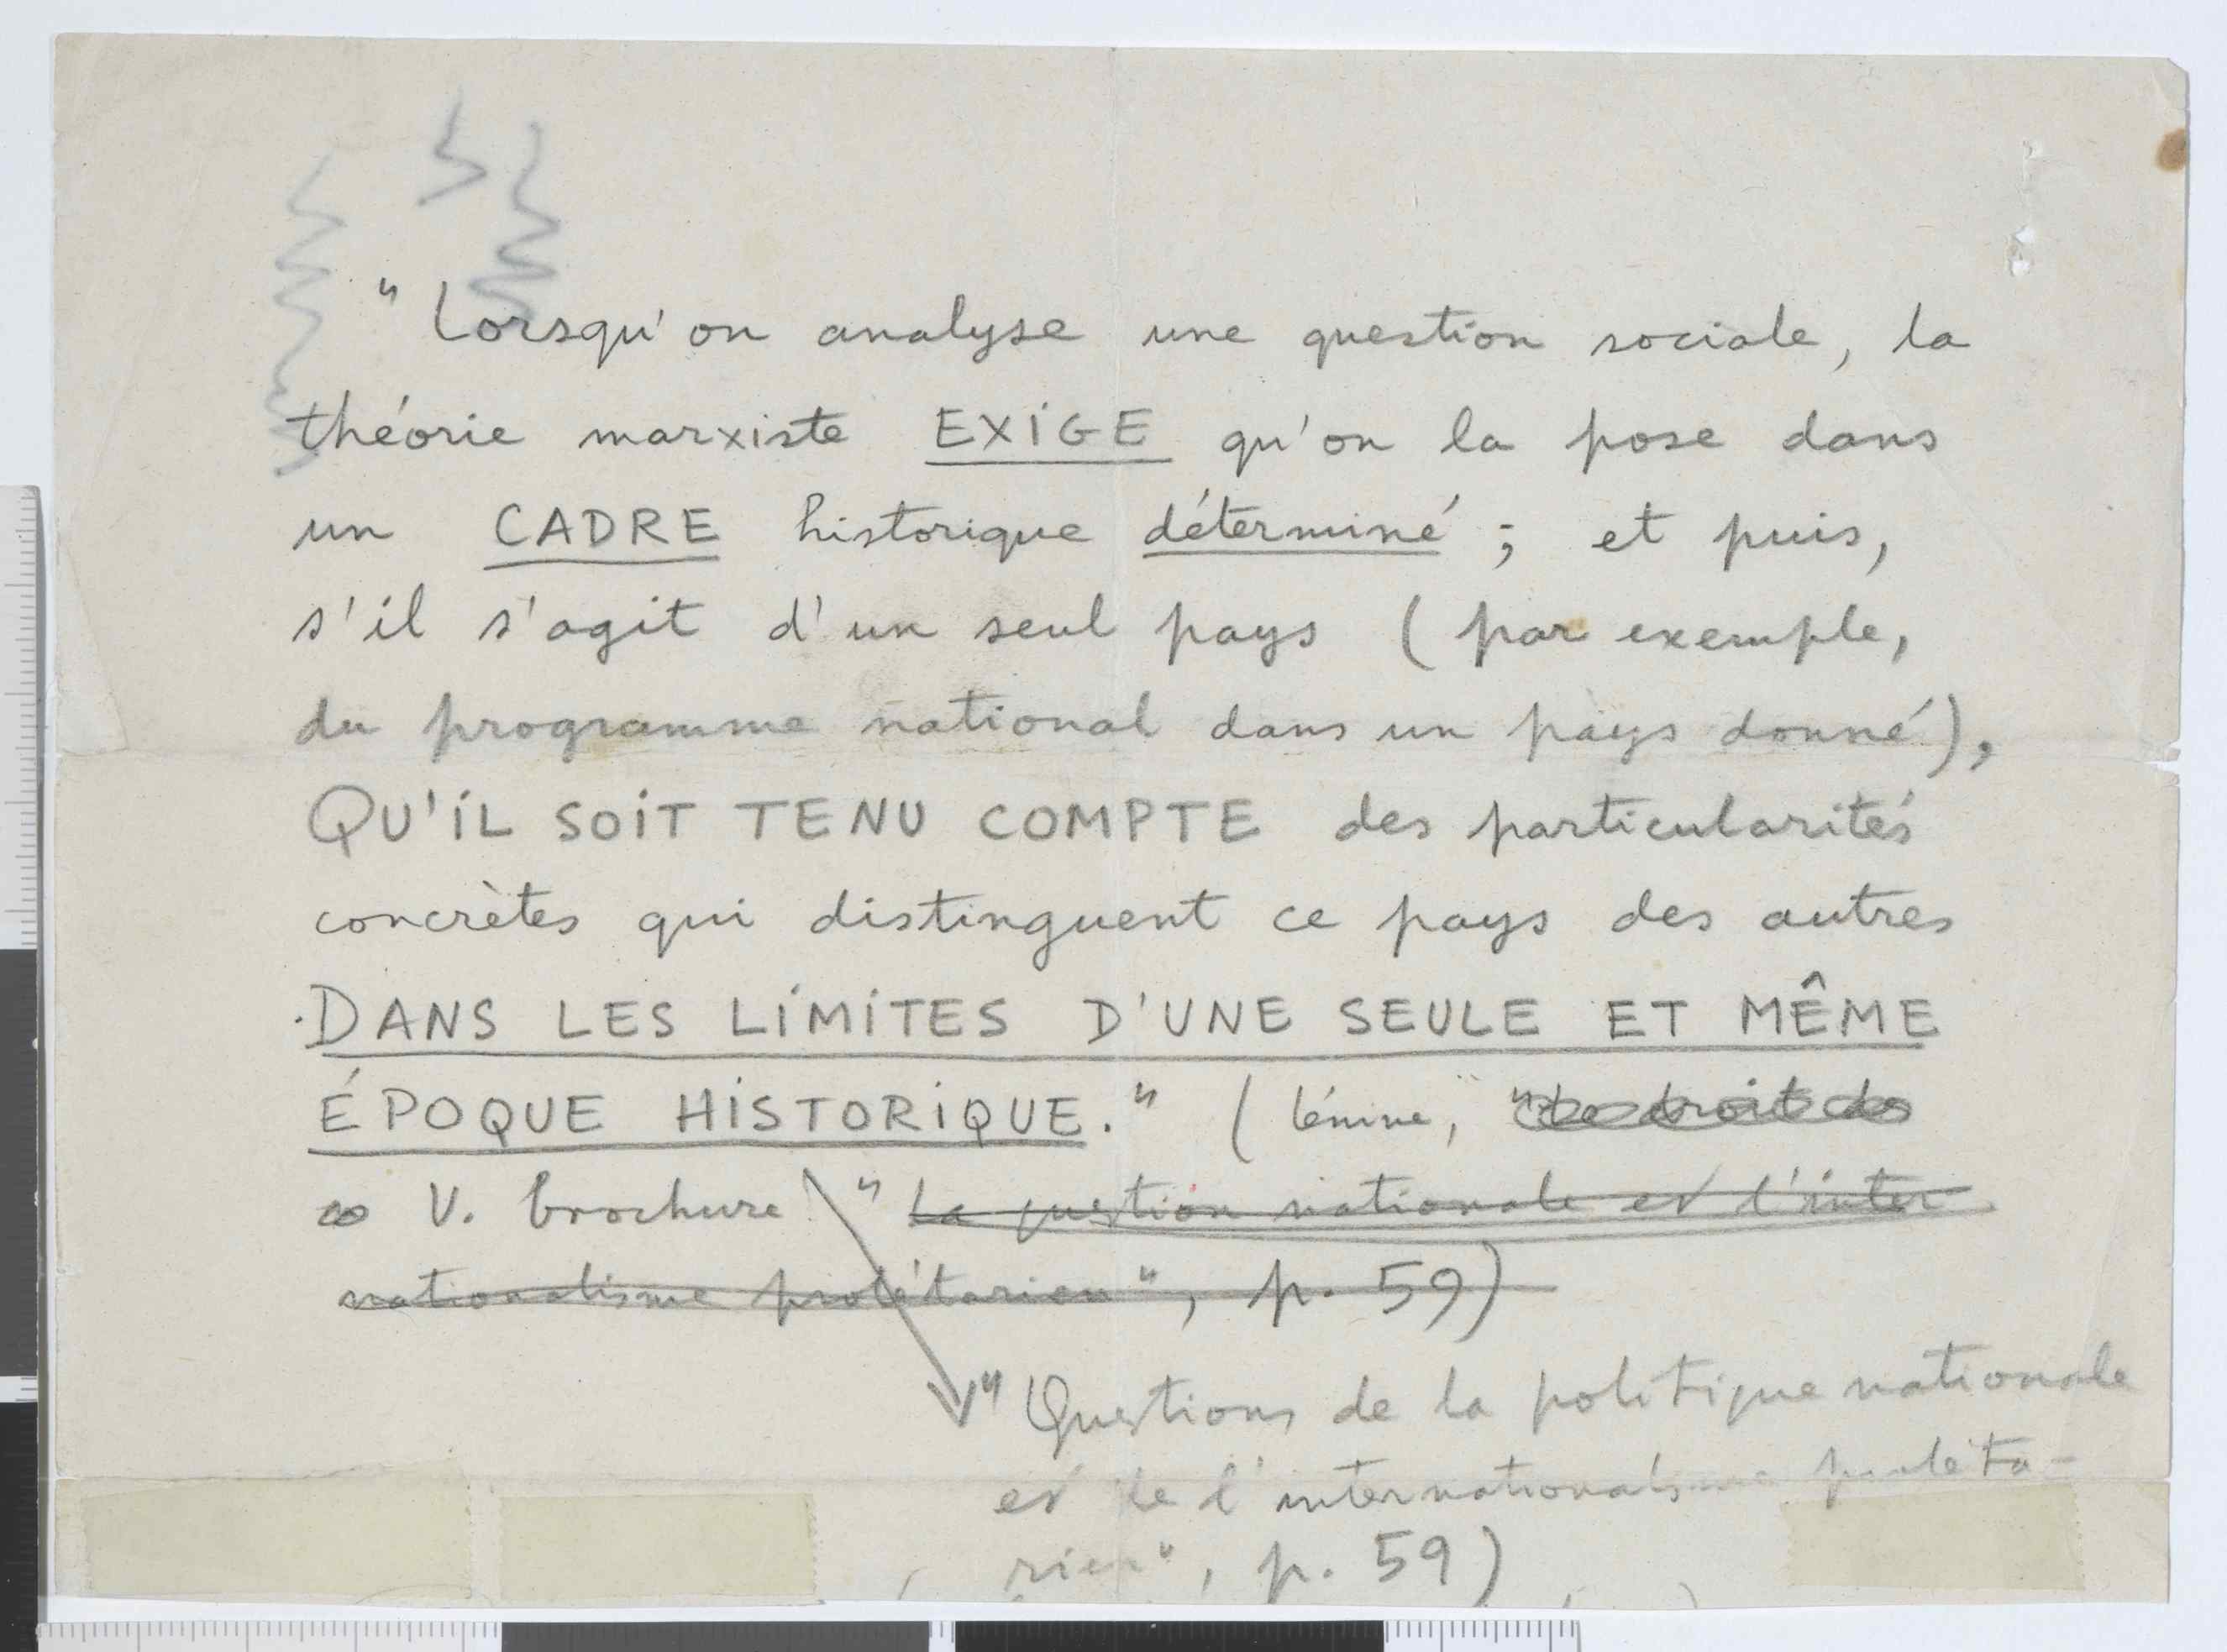 "Lorsqu'on analyse une question sociale, la
théorie marxiste EXIGE qu'on la pose dans
un CADRE historique déterminé ; et puis,
s'il s'agit d'un seul pays (par exemple,
du programme national dans un pays donné),
QU'IL SOIT TENU COMPTE des particularités
concrètes qui distinguent ce pays des autres
DANS LES LIMITES D'UNE SEULE ET MÊME
ÉPOQUE HISTORIQUE." (Lénine, "Le droit des
V. brochure "La question nationale et l'inter
nationalisme prolétarien", p. 59)
"Questions de la politique nationale
et de l'internationalisme proléta-
rien", p. 59)